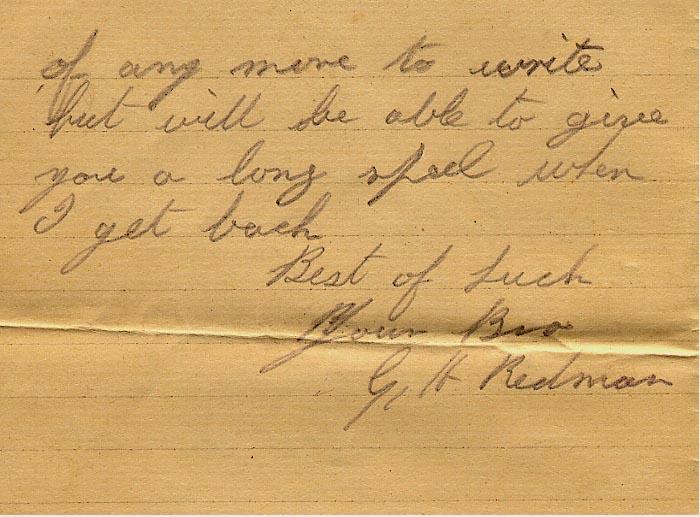 of any more to write
but will be able to give
you a long speel when
I get back
Best of Luck
Your Bro
G, H Redman